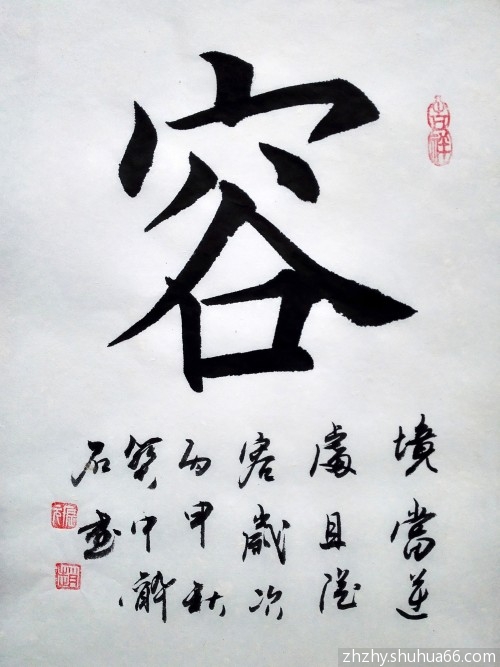 容
吉祥
境當逆
處且從
容歲次
丙申秋
中醉
石書
zhzhy.shuhua66.com